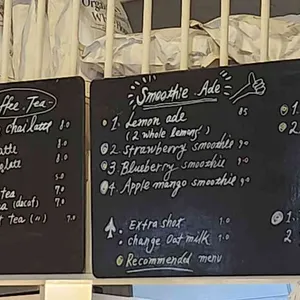 Organic
Wh
ffee Tea
chai latte 8.0
latte 8.0
late 8.0
5.0
tea 7.0
a (decaf) 7.0
t tea (") 7.0
Smoothie - Ade
1. Lemon ade 8.5
(2 whole lemons)
2. Strawberry smoothie 9.0
3 Blueberry smoothie 9.0
4 Apple mango smoothie 9.0
Extra shot 1.0
change Oat milk 1.0
Recommended menu
1.
2
1.
2